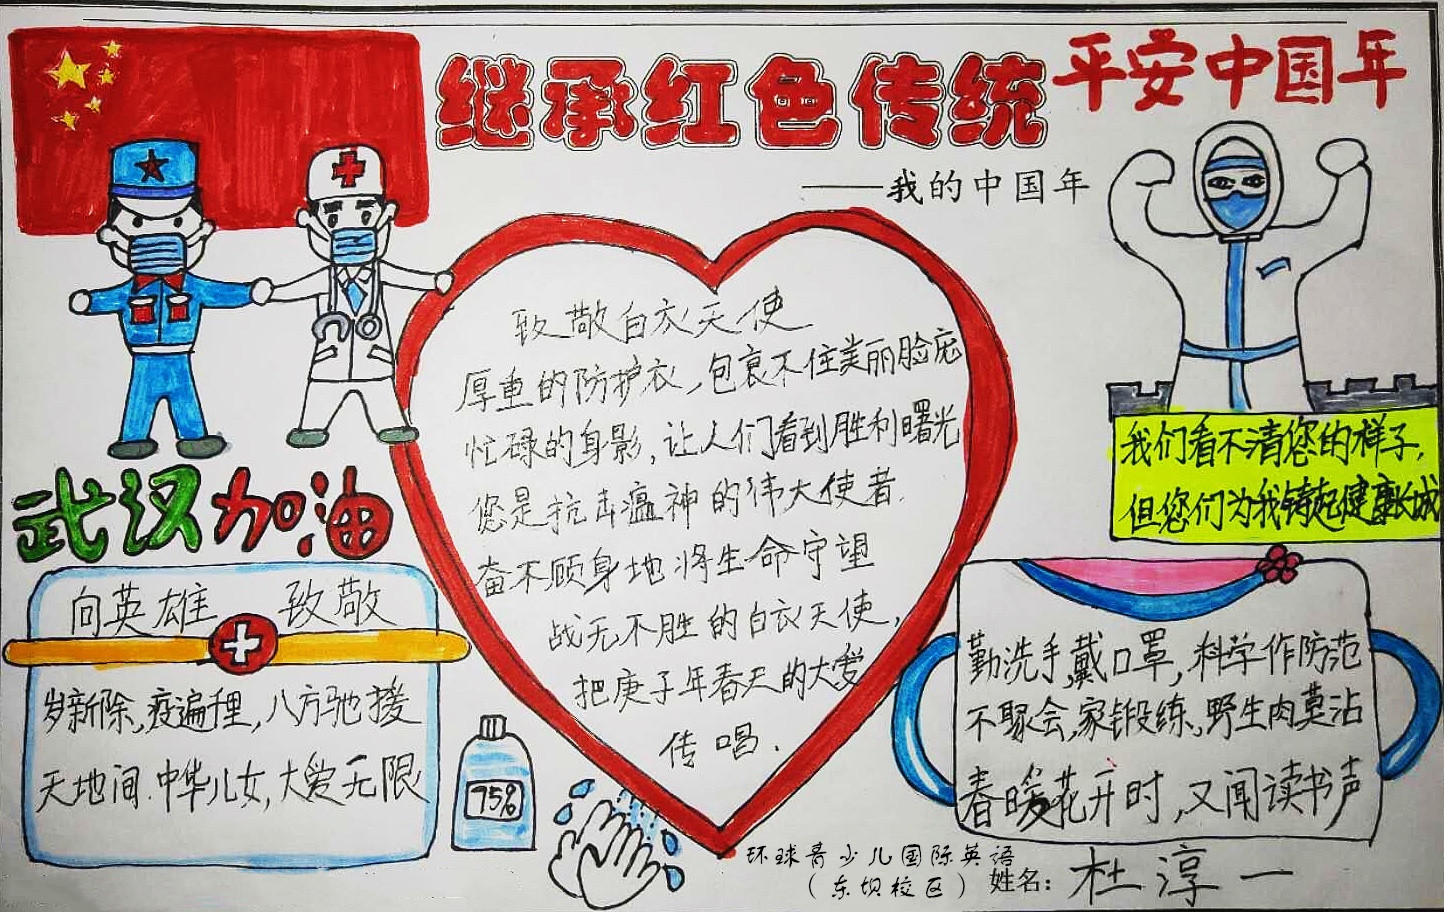 继承红色传统
平安中国年
——我的中国年
致敬白衣天使
厚重的防护衣,包裹不住美丽脸庞
忙碌的身影,让人们看到胜利曙光
您是抗击瘟神的伟大使者.
奋不顾身地将生命守望
战无不胜的白衣天使,
把庚子年春天的大爱
传唱.
我们看不清您的样子,
但您们为我铸起健康长城
武汉加油
向英雄 致敬
岁新除,疫遍理,八方驰援
天地间.中华儿女,大爱无限
75%
勤洗手,戴口罩,科学作防范
不聚会,家锻练,野生肉莫沾
春暖花开时,又闻读书声
环球青少儿国际英语
(东坝校区)
姓名:杜淳一